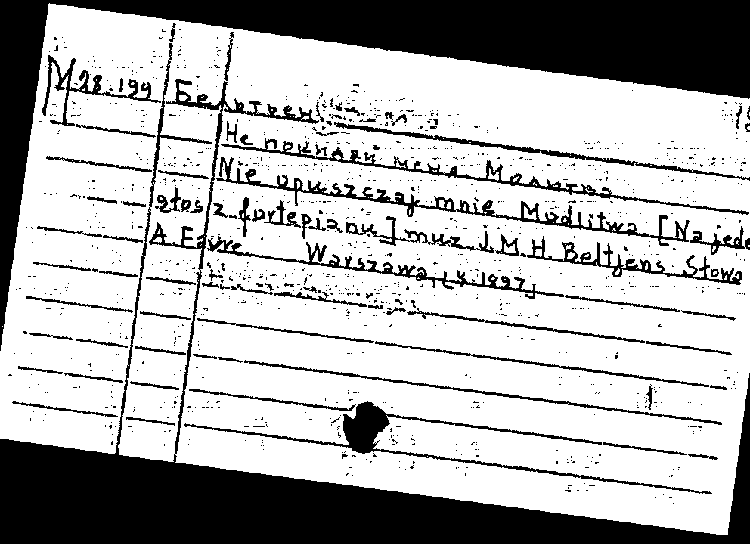 М 28.199 Бельтьен
Не покидай меня Молитва
Nie opuszczaj mnie Modlitwa [Na jede
głos z fortepianu] muz J.M.H. Beltjens Słowa
A Faure Warszawa, 1897